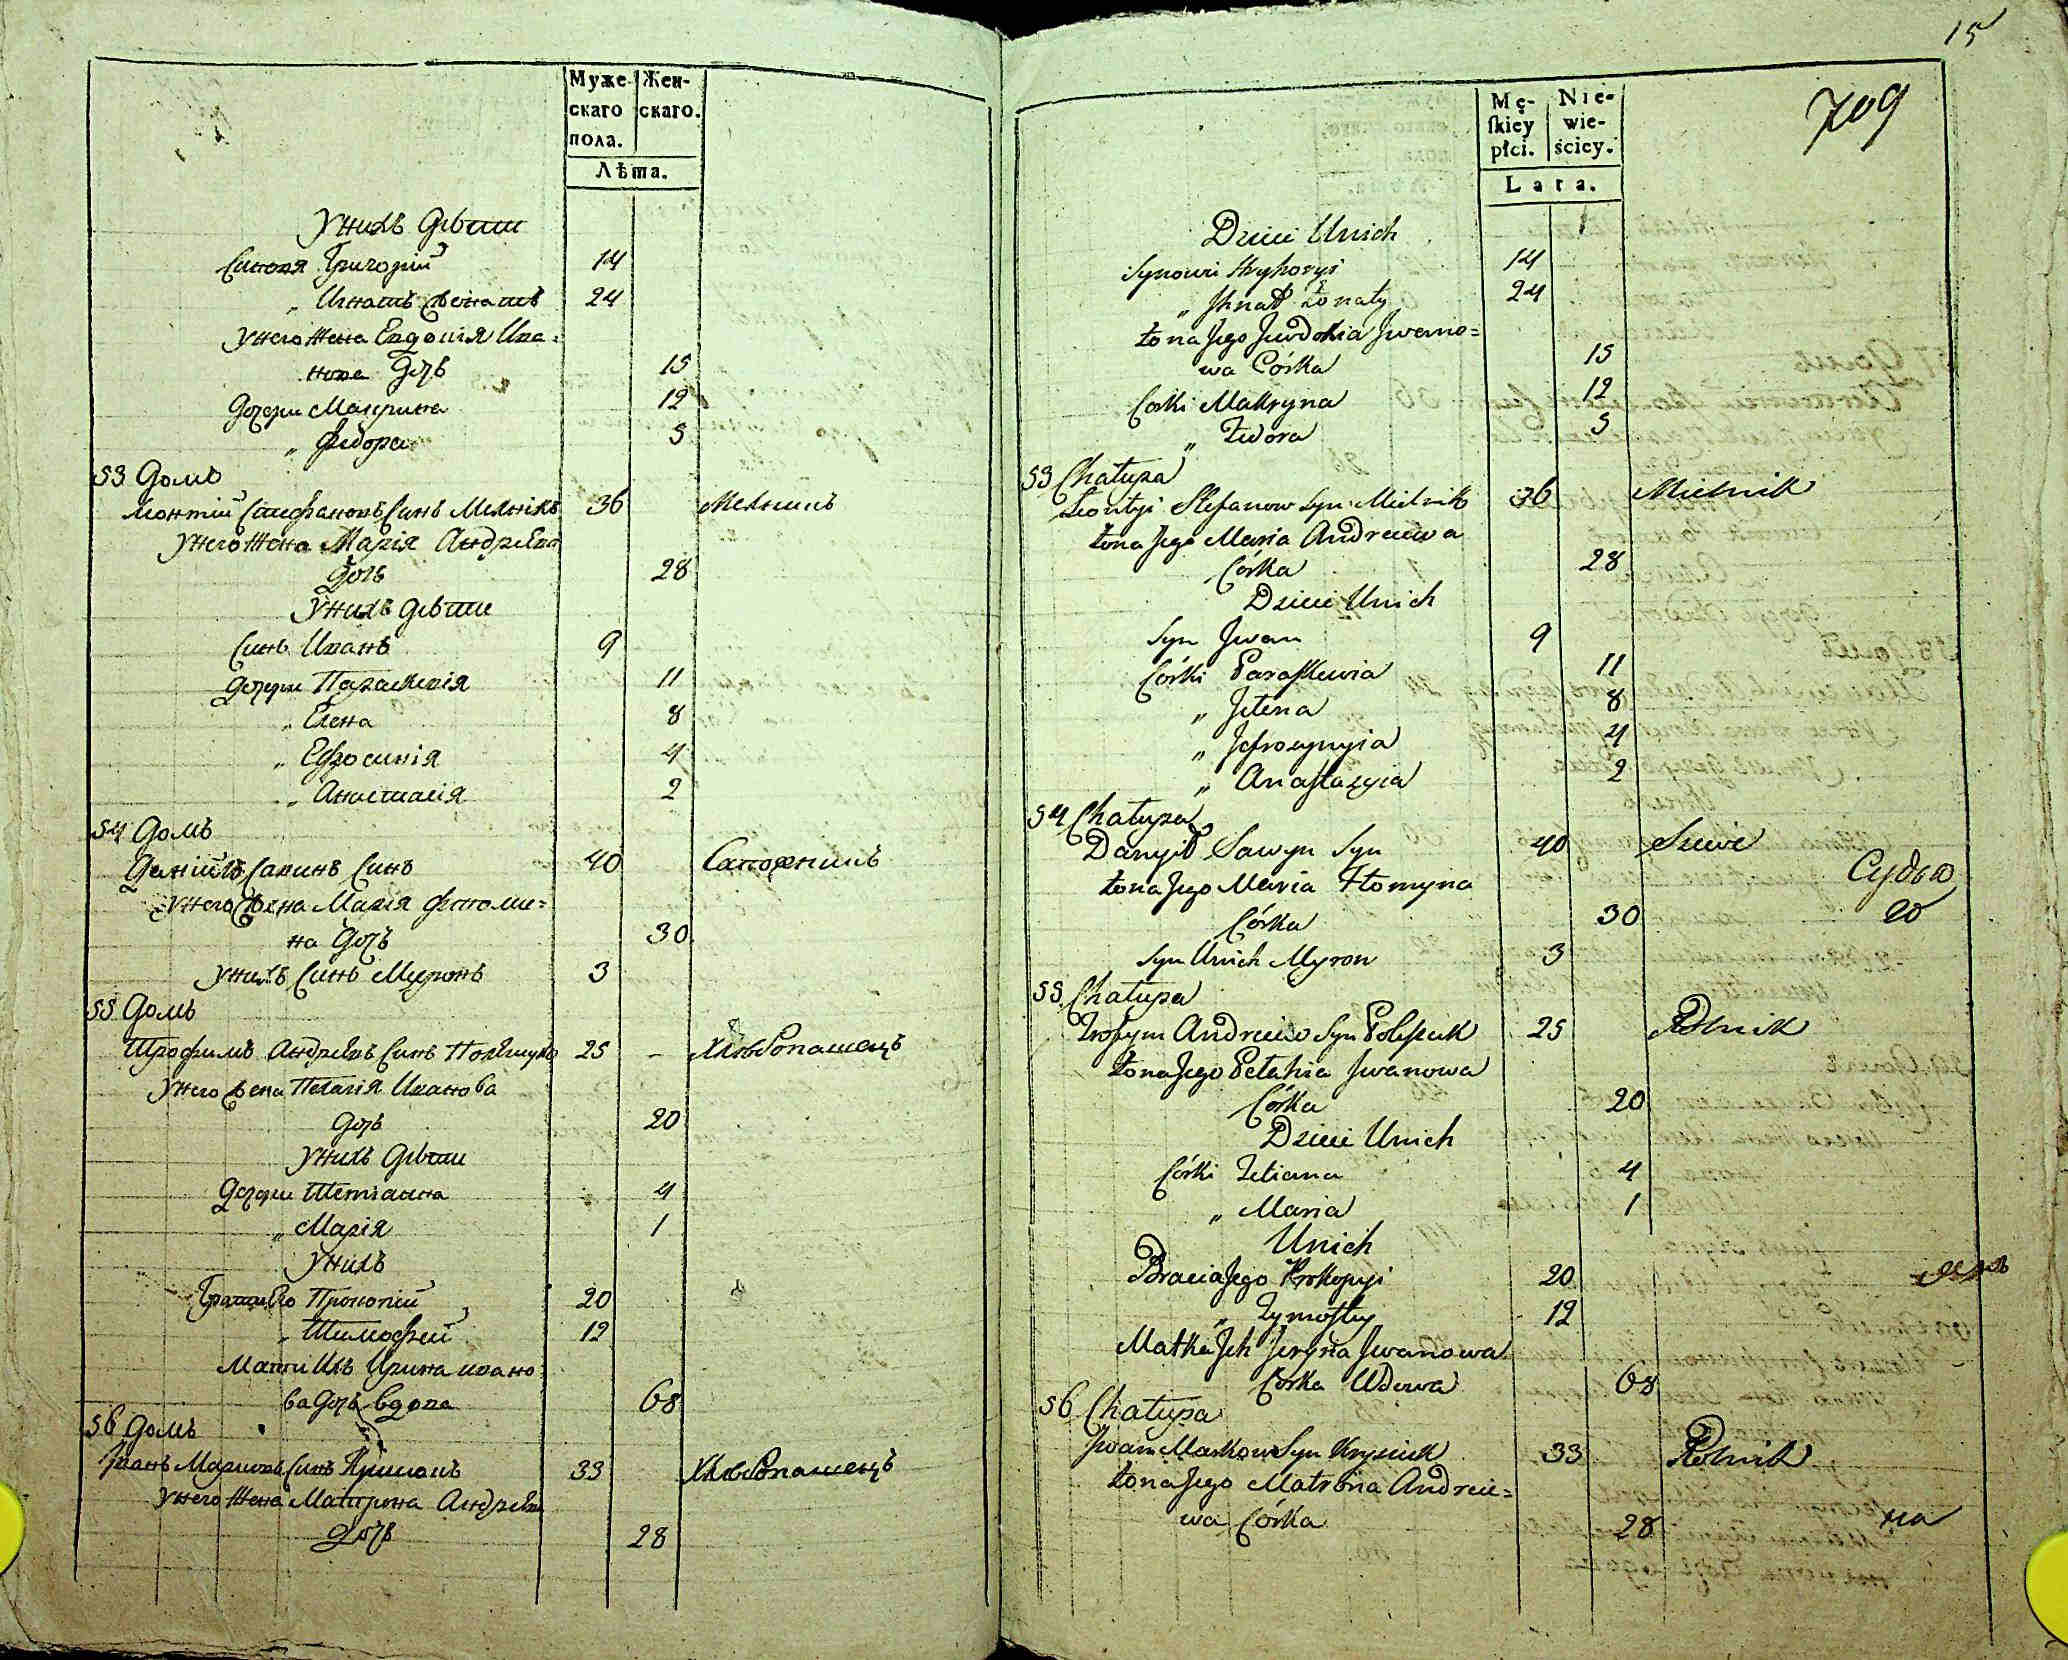 Муже-
скаго
пола.
Жен-
скаго.
Лѣта.
Унихъ Дѣти
Синовя Григорій 14
„ Игнатъ Женатъ 24
Унего Жена Евдокія Ива=
нова Дочь 15
Дочери Макрина 12
„ Федора 5
53 Домъ
Леонтій Стефановъ Синъ Мелникъ 36 Мелникъ
Унего Жена Марія Андрѣева
Дочь 28
Унихъ Дѣти
Синъ Иванъ 9
Дочери Параскевія 11
„ Елена 8
„ Ефросинія 4
„ Анастасія 2
54 Домъ
Даніилъ Савинъ Синъ 40 Сапожникъ
Унего Жена Марія Фтоми=
на Дочь 30
Унихъ Синъ Миронъ 3
55 Домъ
Трофимъ Андрѣевъ Синъ Полѣщукъ 25 - Хлѣбопашецъ
Унего Жена Пелагія Иванова
Дочь 20
Унихъ Дѣти
Дочери Тетіанна 4
„ Марія 1
Унихъ
Брати Его Прокопій 20
„ Тимофей 12
Мати Ихъ Ирина ивано
ва Дочь вдова 68
56 Домъ
Иванъ Марковъ Синъ 33 Хлѣбопашецъ
Унего Жена Матрона Андрѣева
Дочь 28
15
709
Mę-
ſkiey
płci.
Nie-
wie-
ściey.
Lata.
Dzieci Unich
Synowie Hryhoryi 14
„ Jhnat Żonaty 24
Żona Jego Jewdokia Jwano=
wa Córka 15
Corki Makryna 12
„ Fedora 5
53 Chałupa
Leontyi Stefanow Syn Mielnik 36 Mielnik
Żona Jego Maria Andreiewa
Córka 28
Dzieci Unich
Syn Jwan 9
Córki Paraſkewia 11
„ Jelena 8
„ Jefrozynyia 4
„ Anaſtazyia 2
54 Chałupa
Danyił Sawyn Syn 40 Szewc
Żona Jego Maria Ftomyna
Córka 30
Syn Unich Myron 3
Судьо
20
55 Chałupa
Trofym Andreiew Syn Poleſzuk 25 Rolnik
Żona Jego Pelahia Jwanowa
Córka 20
Dzieci Unich
Córki Tetiana 4
„ Maria 1
Unich
Bracia Jego Prokopyi 20
„ Tymofey 12
Matka Jch Jeryna Jwanowa
Córka Wdowa 68
56 Chałupa
Jwan Markow Syn Krysiuk 33 Rolnik
Żona Jego Matrona Andreie=
wa Córka 28
на